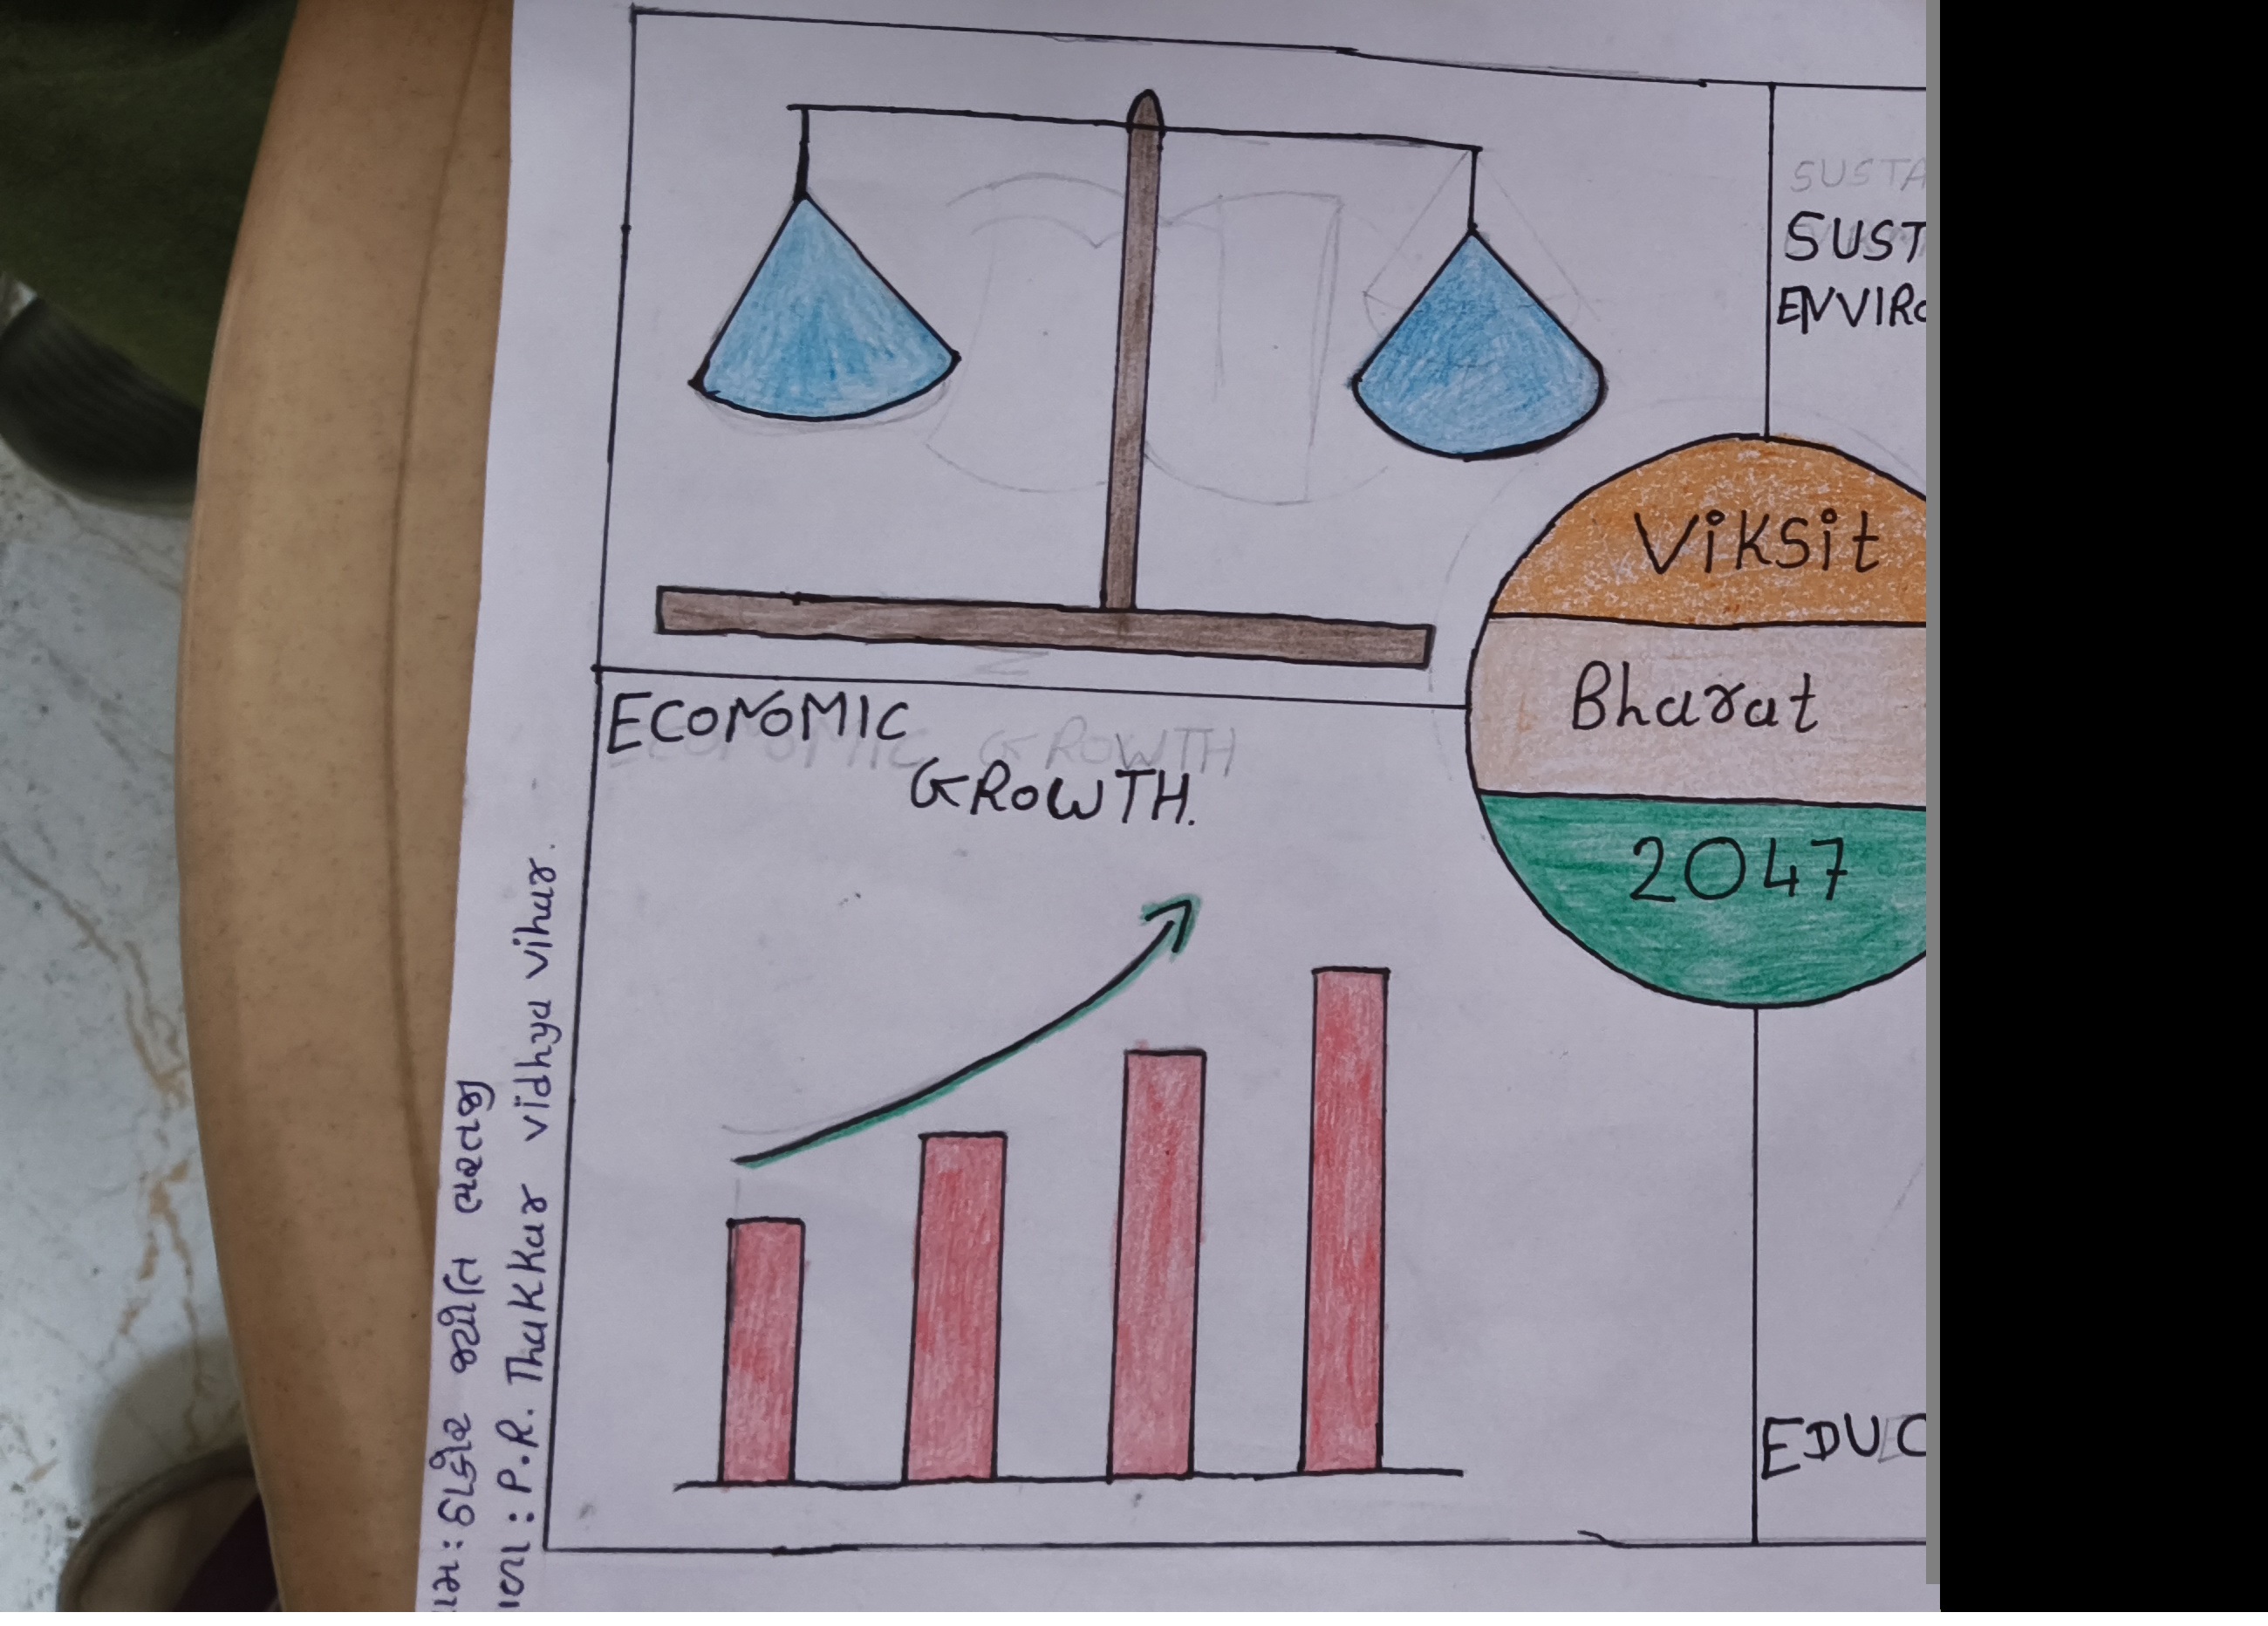 SUSTA
SUST
ENVIRO
Viksit
Bharat
2047
ECONOMIC
ECONOMIC GROWTH
GROWTH.
EDUC
નામ : ઠાકોર જ્યોતિ ભરતજી
શાળા : P.R. Thakkar vidhya vihar.